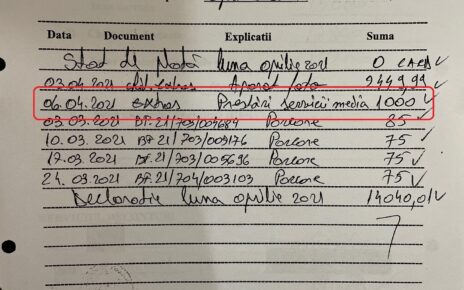 Data Document Explicatii Suma
Stat de plată luna aprilie 2021 0
03.04.2021 extras Aparat foto 9449,99
06.04.2021 extras Prestări servicii media 1000
03.03.2021 BF.21/703/004684 Parcare 85
10.03.2021 BF 21/703/009176 Parcare 75
17.03.2021 BF.21/703/005696 Parcare 75
24.03.2021 BF.21/704/003103 Parcare 75
Declaratie luna aprilie 2021 14040,01